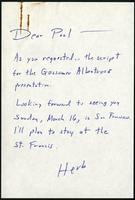 Dear Paul —
As you requested.. the script
for the Gossamer Albatross
presentation.
Looking forward to seeing you
Sunday, March 16, in San Francisco.
I'll plan to stay at the
St. Francis.
Herb